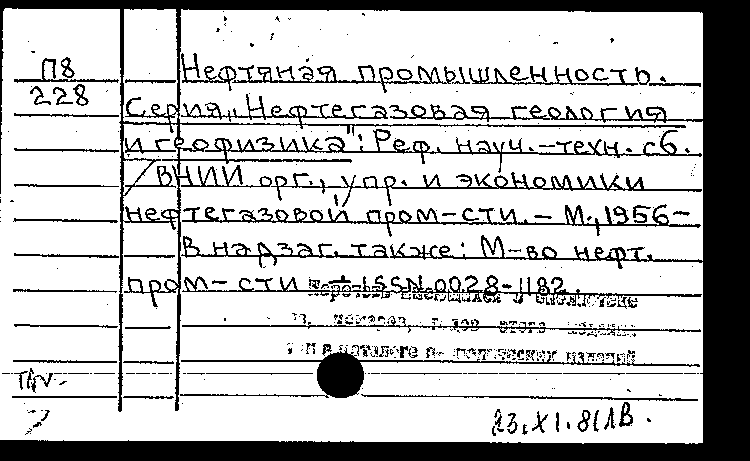 П8
228
Нефтяная промышленность.
Серия „Нефтегазовая геология
и геофизика": Реф. науч.-техн. сб.
/ ВНИИ орг., упр. и экономики
нефтегазовой пром-сти. – М., 1956–
В надзаг. также: М-во нефт.
пром-сти. – ISSN 0028-1182.
Перечень имеющихся в библиотеке
номеров, годов этого издания
в каталоге периодических изданий
23.XI.81